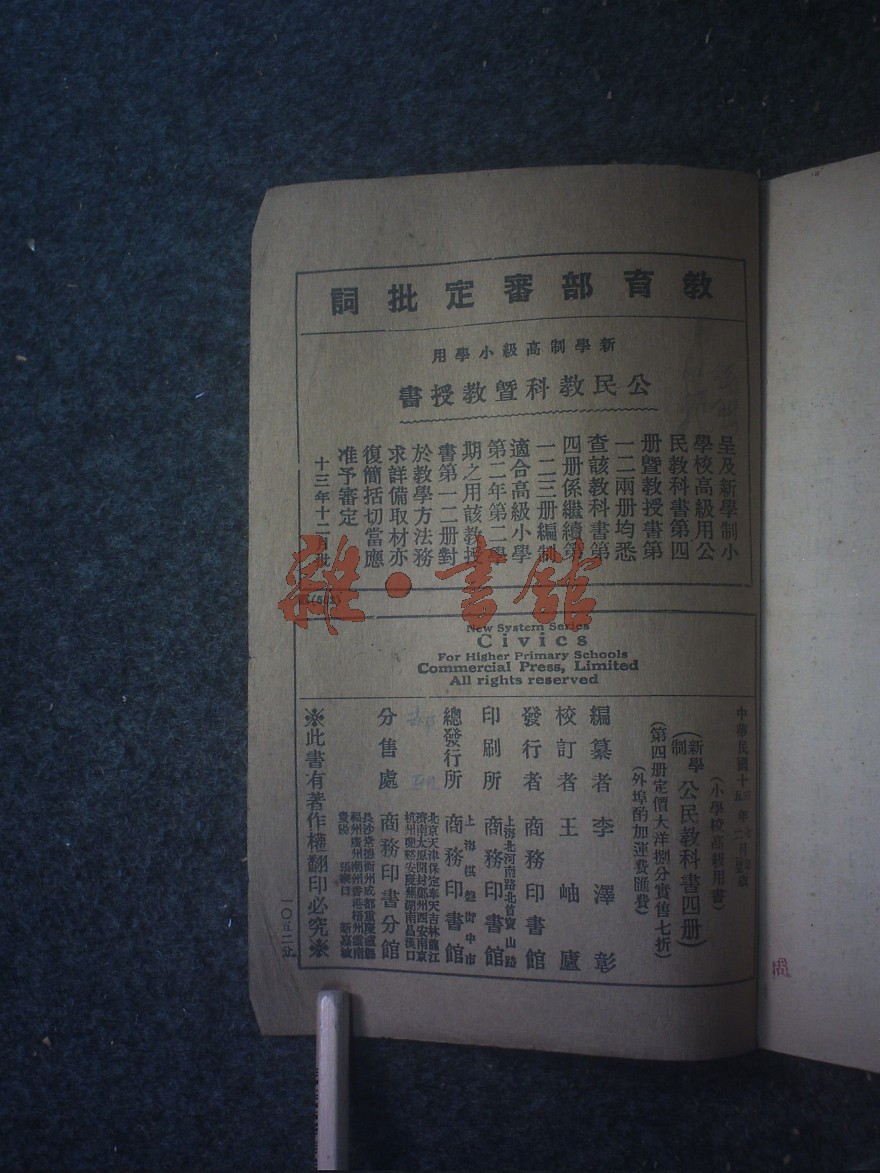 教育部審定批詞
新學制高級小學用
公民教科暨教授書
呈及新學制小
學校高級用公
民教科書第四
册暨教授書第
一二兩册均悉
查該教科書第
四册係繼續第
一二三册編制
適合高級小學
第二年第二學
期之用該教授
書第一二册對
於教學方法務
求詳備取材亦
復簡括切當應
准予審定
十三年十二月批
New System Series
Civics
For Higher Primary Schools
Commercial Press, Limited
All rights reserved
中華民國十
(小學校高級用書)
(新學制)公民教科書四册
(第四册定價大洋捌分實售七折)
(外埠酌加運費匯費)
編纂者 李澤彰
校訂者 王岫廬
發行者 商務印書館
印刷所 上海北河南路北首寶山路 商務印書館
總發行所 上海棋盤街中市 商務印書館
分售處 商務印書分館
北京天津保定奉天吉林龍江
濟南太原開封鄭州西安南京
杭州蘭谿安慶蕪湖南昌漢口
※此書有著作權翻印必究※
一〇五二
雜·書館